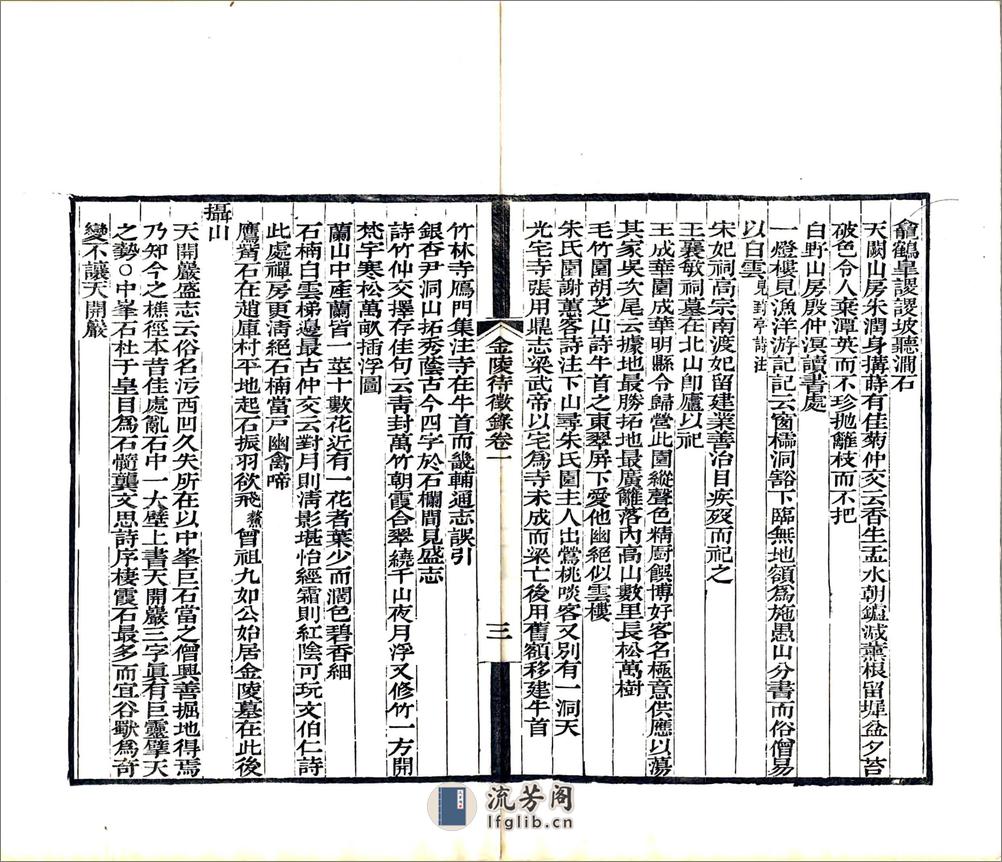 龕鶴皐謖謖坡聽澗石
天闕山房朱潤身搆蒔有佳菊仲交云香生盂水朝鑪減薰根留墀盆夕苔
破色令人棄潭英而不珍抛離枝而不把
白野山房殷仲溟讀書處
一燈樓見漁洋游記記云窗櫺洞豁下臨無地額為施愚山分書而俗僧易
以白雲見封亭詩注
宋妃祠高宗南渡妃留建業善治目疾歿而祀之
王襄敏祠墓在北山卽廬以祀
王成華園成華明縣令歸營此園縱聲色精厨饌博好客名極意供應以蕩
其家吳次尾云據地最勝拓地最廣籬落內高山數里長松萬樹
毛竹園胡芝山詩牛首之東翠屏下愛他幽絕似雲樓
朱氏園謝蕙客詩注下山尋朱氏園主人出鶯桃啖客又別有一洞天
光宅寺張用鼎志梁武帝以宅為寺未成而梁亡後用舊額移建牛首
金陵待徵錄卷一
三
竹林寺鴈門集注寺在牛首而畿輔通志誤引
銀杏尹洞山拓秀蔭古今四字於石欄間見盛志
詩竹仲交擇存佳句云靑封萬竹朝霞合翠繞千山夜月浮又修竹一方開
梵宇寒松萬畝插浮圖
蘭山中產蘭皆一莖十數花近有一花者葉少而濶色碧香細
石楠白雲梯邊最古仲交云對月則淸影堪怡經霜則紅陰可玩文伯仁詩
此處禪房更淸絕石楠當戶幽禽啼
鷹觜石在趙庫村平地起石振羽欲飛鰲曾祖九如公始居金陵墓在此後
攝山
天開巖盛志云俗名污西凹久失所在以中峯巨石當之僧興善掘地得焉
乃知今之樵徑本昔佳處亂石中一大壁上書天開巖三字眞有巨靈擘天
之勢○中峯石杜子皇目為石髓龔文思詩序棲霞石最多而宜谷歇為奇
變不讓天開巖
流芳阁
lfglib.cn